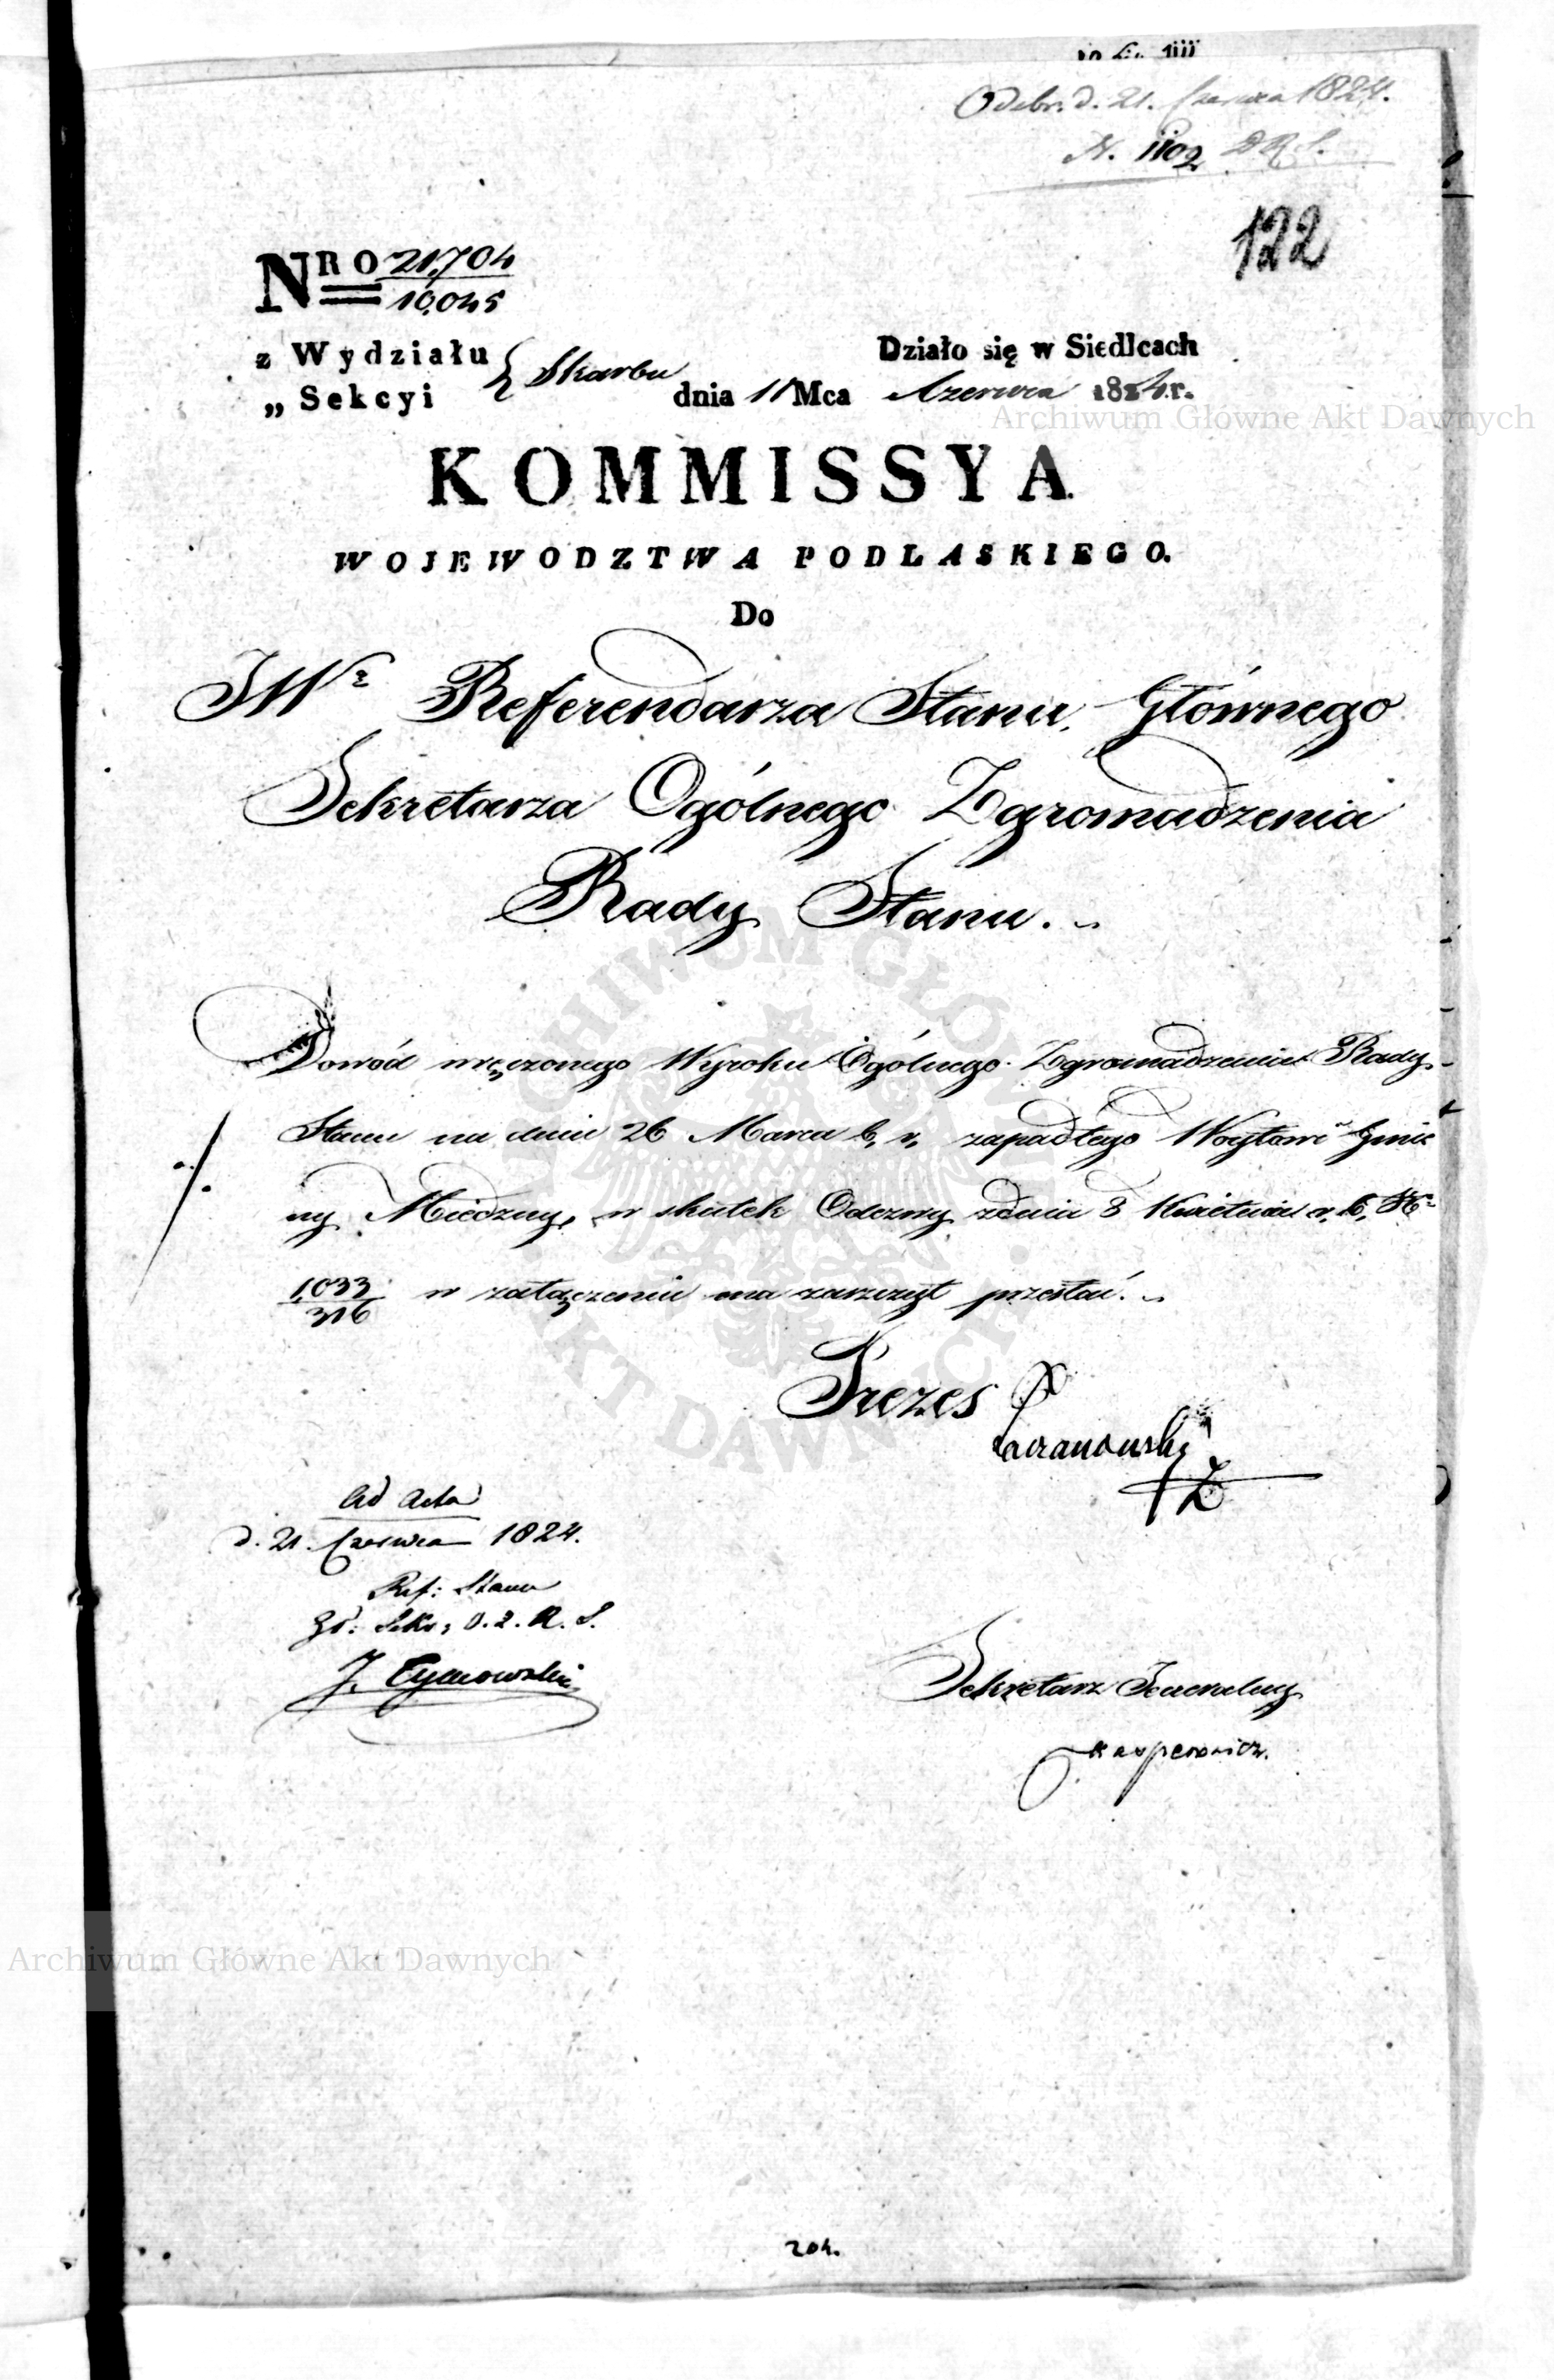 Odebr. d. 21. Czerwca 1824.
N. 1102 D R S.
122
NRO 21,704
10,045
z Wydziału
„ Sekcyi
Skarbu
Działo się w Siedlcach
dnia 11 Mca Czerwca 1824.r.
KOMMISSYA
WOJEWODZTWA PODLASKIEGO.
Do
JWo Referendarza Stanu, Głównego
Sekretarza Ogólnego Zgromadzenia
Rady Stanu.
Dowód wręczonego Wyroku Ogólnego Zgromadzenia Rady
Stanu na dniu 26 Marca b, r, zapadłego Woytowi Gmi
ny Miedzny, w skutek Odezwy zdnia 8 Kwietnia r, b, No
1,033
316
w załączeniu ma zaszczyt przesłać.
Prezes
Ad Acta
d. 21. Czerwca 1824.
Ref: Stanu
Gł: Sekr: O. Z. R. S.
J. Tymowski
Sekretarz Jeneralny
Karpowicz.
204.
Archiwum Główne Akt Dawnych
Archiwum Główne Akt Dawnych
ARCHIWUM GŁÓWNE AKT DAWNYCH